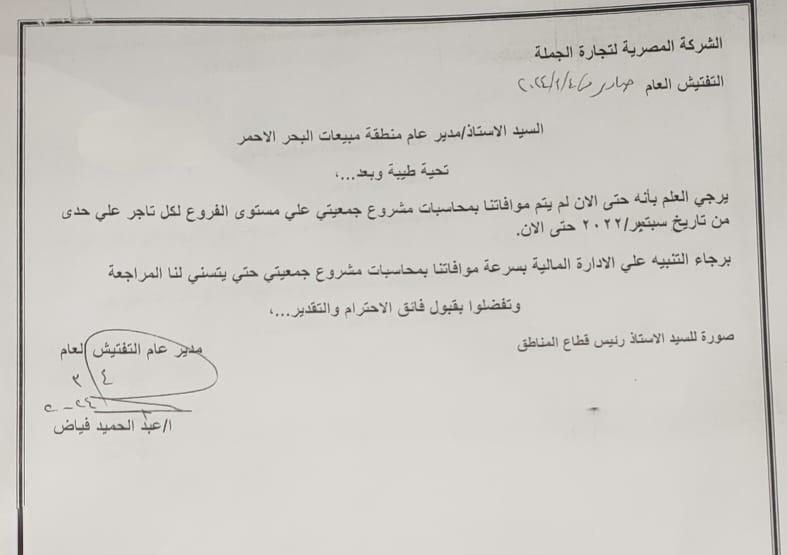 الشركة المصرية لتجارة الجملة
التفتيش العام صادر في ٢٠٢٤/٣/٤
السيد الاستاذ/مدير عام منطقة مبيعات البحر الاحمر
تحية طيبة وبعد...،
يرجي العلم بأنه حتى الان لم يتم موافاتنا بمحاسبات مشروع جمعيتي علي مستوى الفروع لكل تاجر علي حدى
من تاريخ سبتمبر/٢٠٢٢ حتى الان.
برجاء التنبيه علي الادارة المالية بسرعة موافاتنا بمحاسبات مشروع جمعيتي حتي يتسني لنا المراجعة
وتفضلوا بقبول فائق الاحترام والتقدير...،
صورة للسيد الاستاذ رئيس قطاع المناطق
مدير عام التفتيش العام
٤ ٣
٢٠٢٤
ا/عبد الحميد فياض